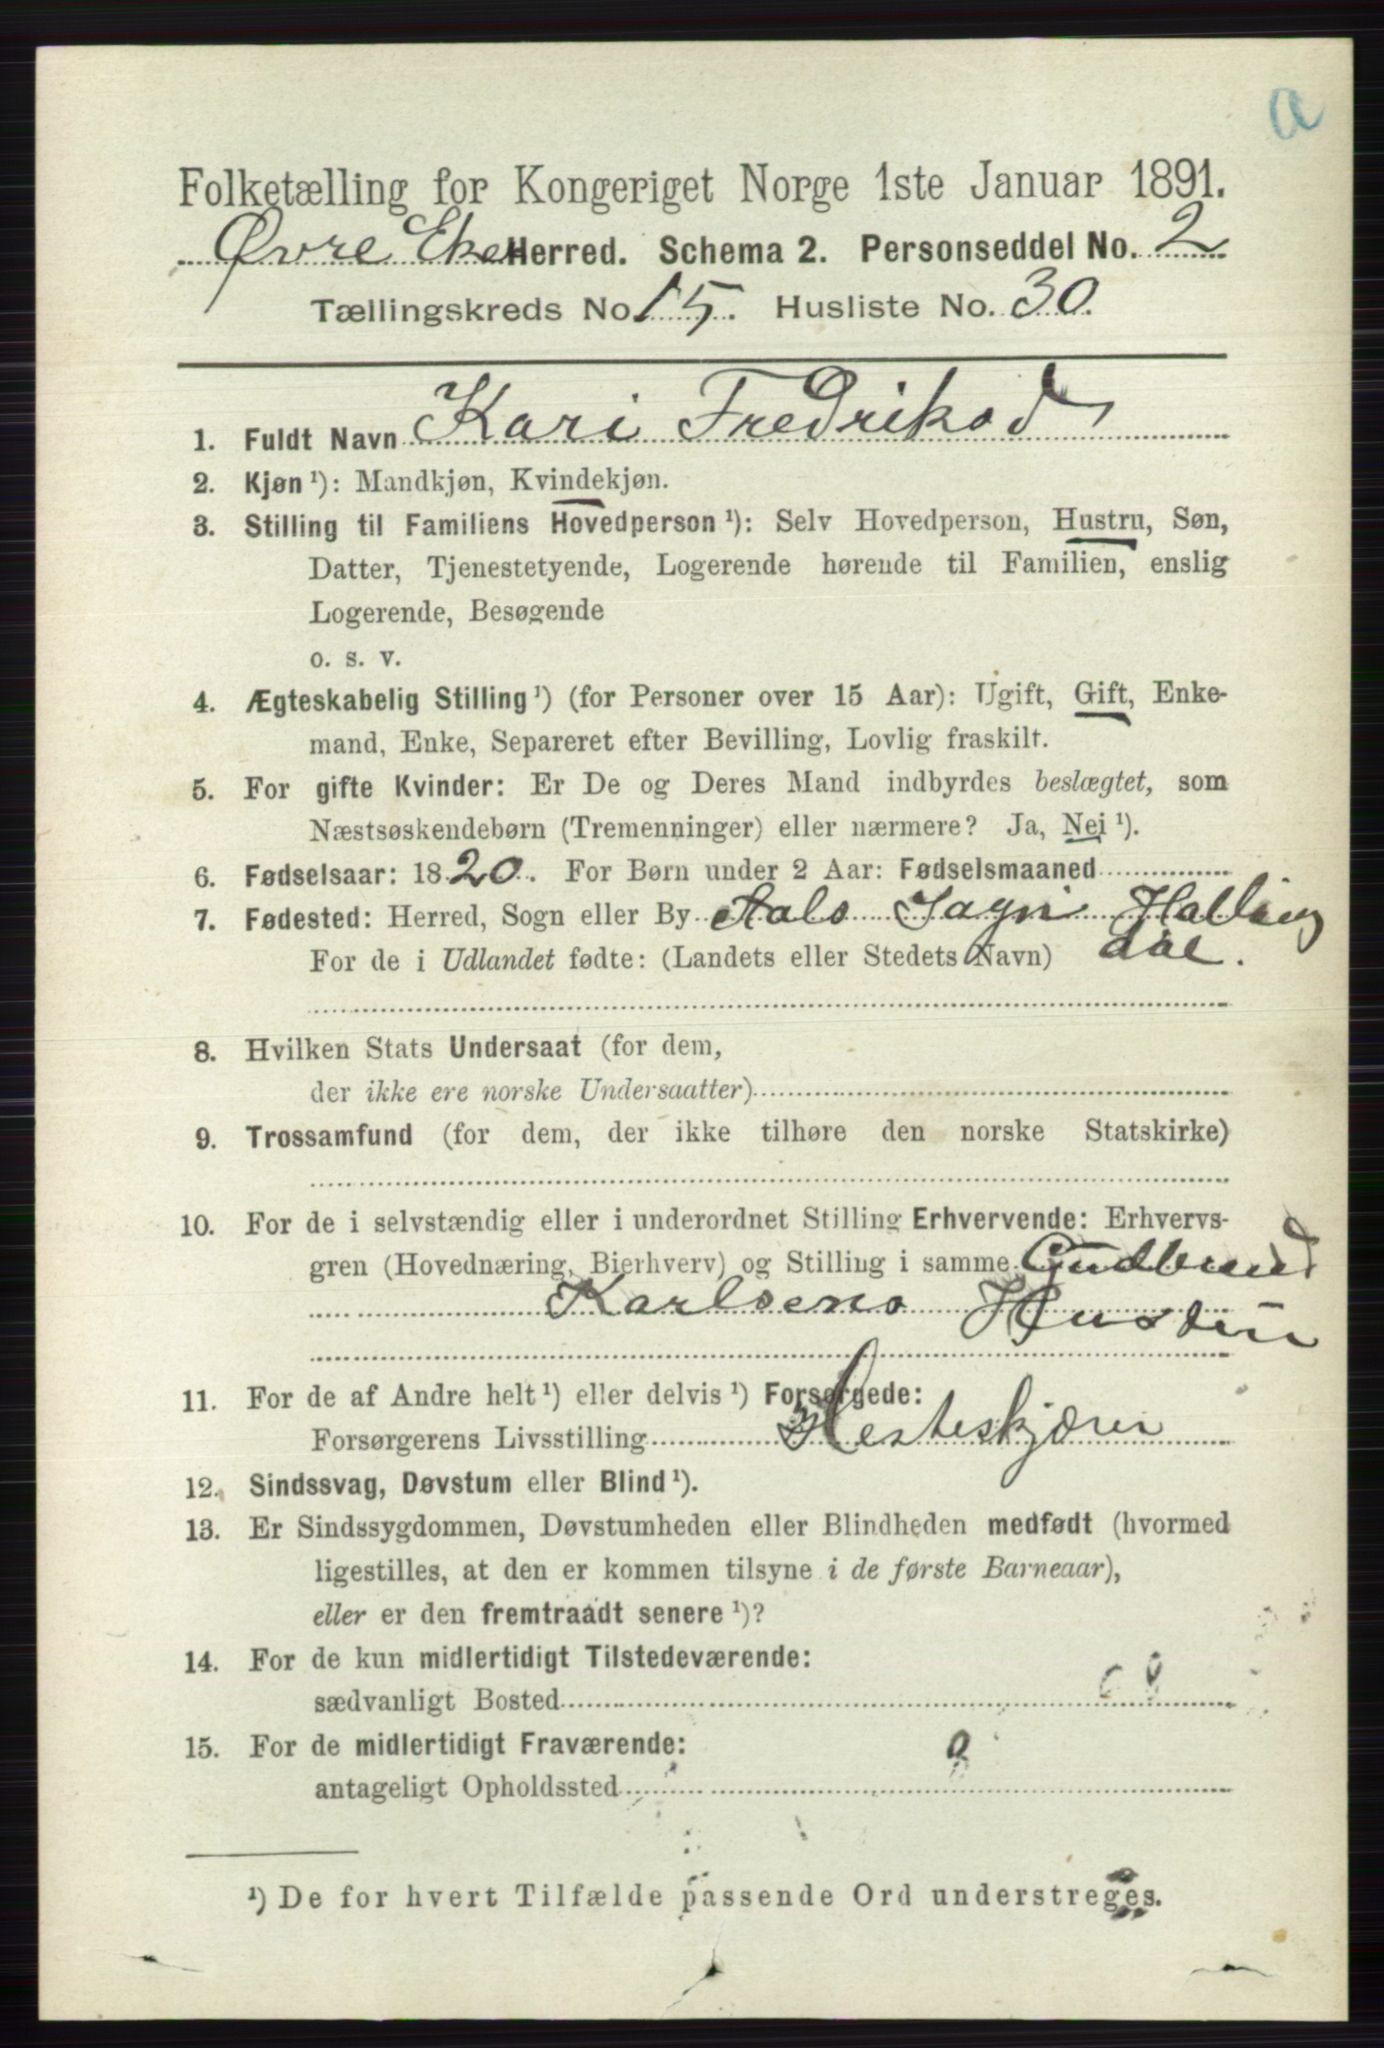 a
Folketælling for Kongeriget Norge 1ste Januar 1891.
Øvre Eker Herred. Schema 2. Personseddel No. 2
Tællingskreds No. 15. Husliste No. 30.
1. Fuldt Navn Kari Fredriksd
2. Kjøn ¹): Mandkjøn, Kvindekjøn.
3. Stilling til Familiens Hovedperson ¹): Selv Hovedperson, Hustru, Søn,
Datter, Tjenestetyende, Logerende hørende til Familien, enslig
Logerende, Besøgende
o. s. v.
4. Ægteskabelig Stilling ¹) (for Personer over 15 Aar): Ugift, Gift, Enke-
mand, Enke, Separeret efter Bevilling, Lovlig fraskilt.
5. For gifte Kvinder: Er De og Deres Mand indbyrdes beslægtet, som
Næstsøskendebørn (Tremenninger) eller nærmere? Ja, Nei ¹).
6. Fødselsaar: 1820. For Børn under 2 Aar: Fødselsmaaned
7. Fødested: Herred, Sogn eller By Aals Sogn Halling
For de i Udlandet fødte: (Landets eller Stedets Navn) dal.
8. Hvilken Stats Undersaat (for dem,
der ikke ere norske Undersaatter)
9. Trossamfund (for dem, der ikke tilhøre den norske Statskirke)
10. For de i selvstændig eller i underordnet Stilling Erhvervende: Erhvervs-
gren (Hovednæring, Bierhverv) og Stilling i samme Gudbrand
Karlsens Hustru
11. For de af Andre helt ¹) eller delvis ¹) Forsørgede:
Forsørgerens Livsstilling Hesteskjærer
12. Sindssvag, Døvstum eller Blind ¹).
13. Er Sindssygdommen, Døvstumheden eller Blindheden medfødt (hvormed
ligestilles, at den er kommen tilsyne i de første Barneaar),
eller er den fremtraadt senere ¹)?
14. For de kun midlertidigt Tilstedeværende:
sædvanligt Bosted
15. For de midlertidigt Fraværende:
antageligt Opholdssted
¹) De for hvert Tilfælde passende Ord understreges.